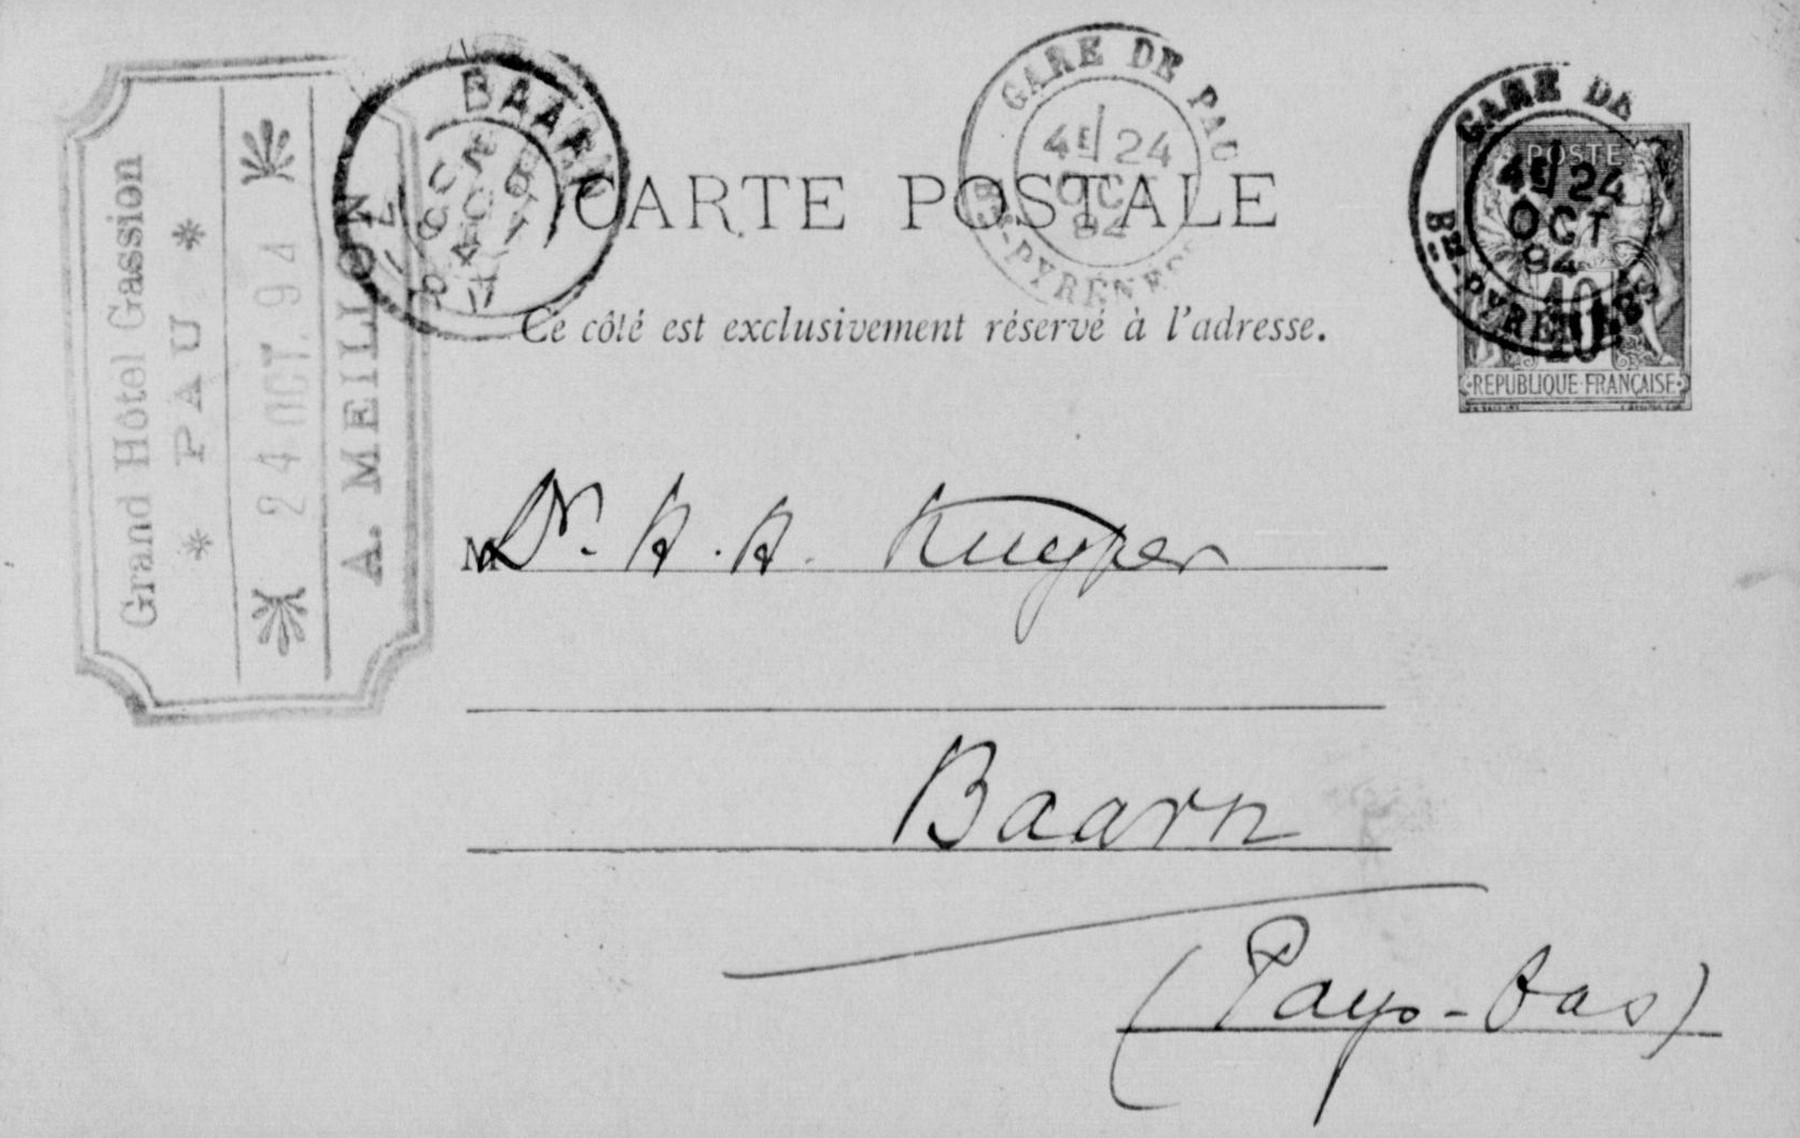 Grand Hôtel Gassion
* PAU *
24 OCT. 94
A. MEILLON
BAARN
GARE DE PAU
4E 24
OCT
94
BSES-PYRÉNEES
GARE DE
4E 24
OCT
94
BSES-PYRÉNEES
POSTE
10
REPUBLIQUE FRANÇAISE
CARTE POSTALE
Ce côté est exclusivement réservé à l'adresse.
M Dr. H. H. Kuyper
Baarn
(Pays-bas)